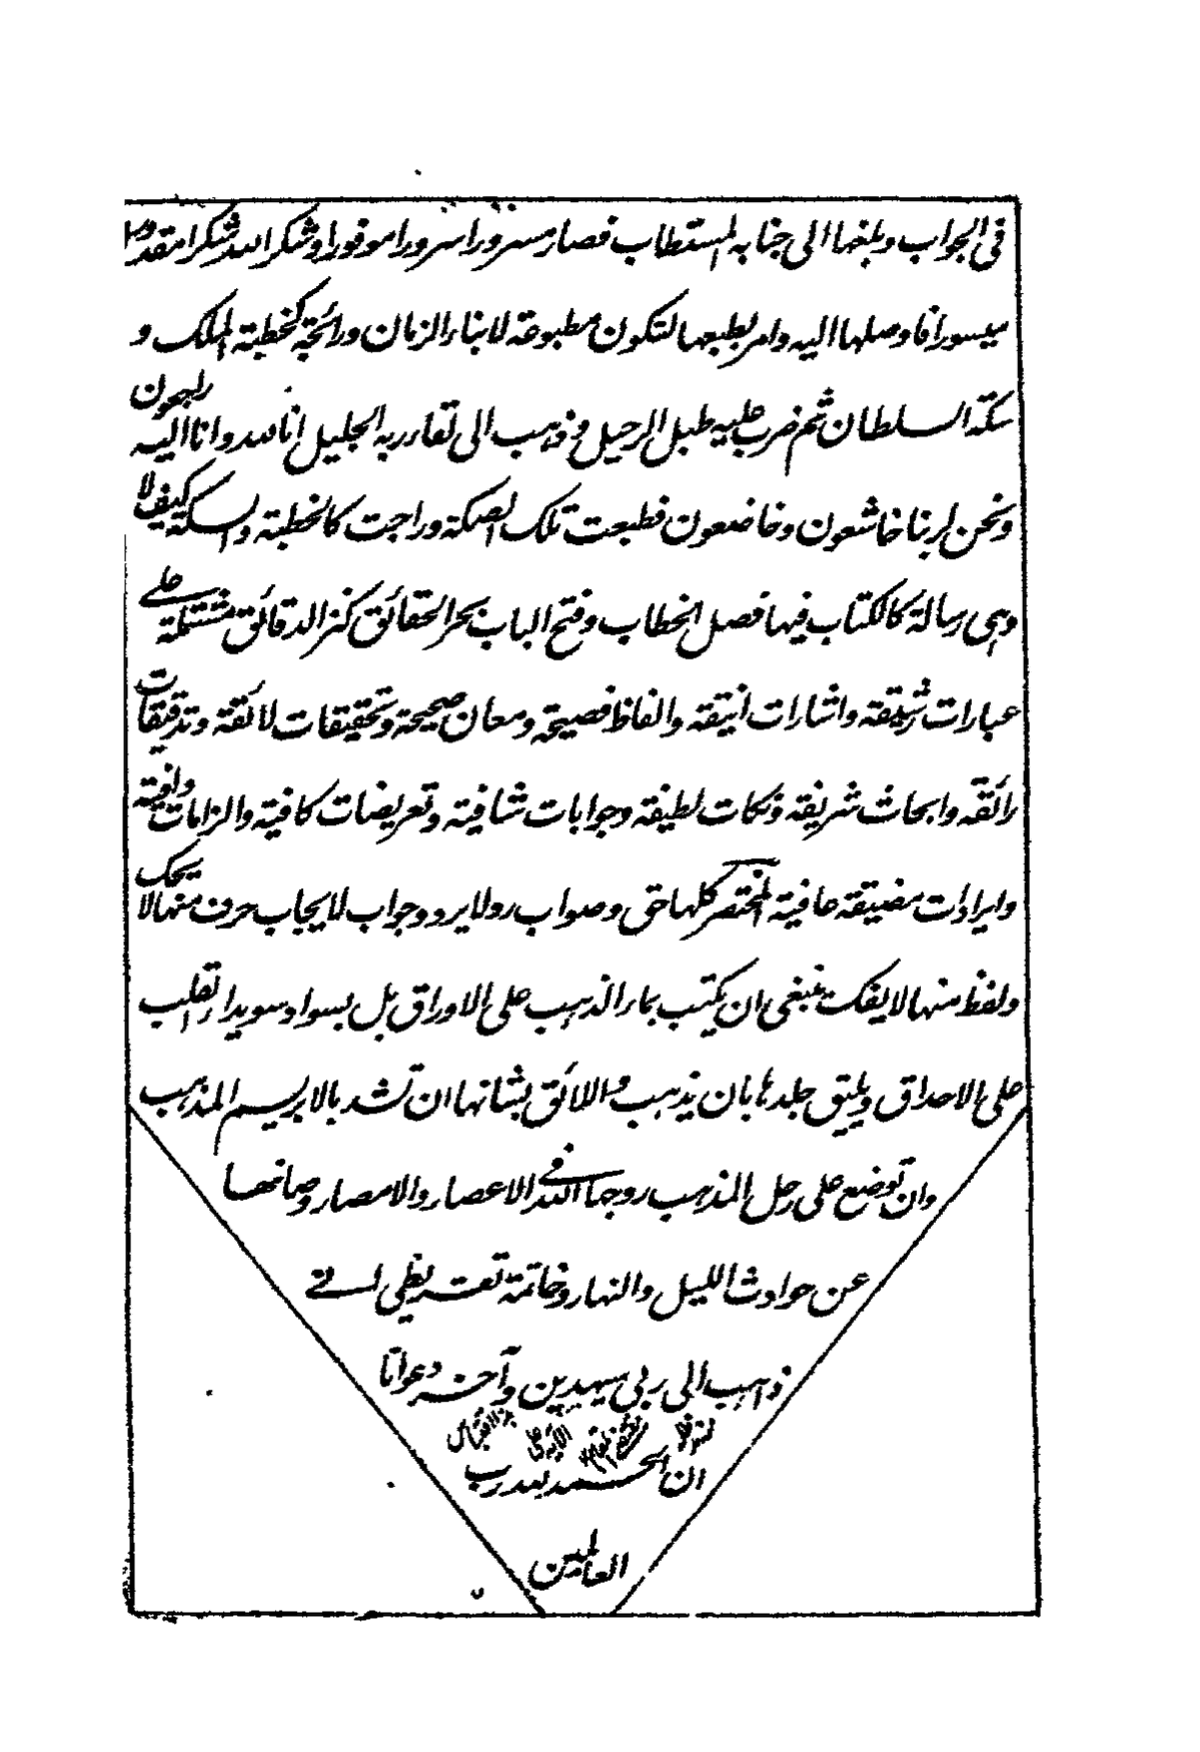 فى الجواب وبلغها الى جنابه المستطاب فصار مسرورا سرورا موفورا وشكر الله شكرا مقدورا
ميسورا فاوصلها اليه وامر بطبعها لتكون مطبوعة لابناء الزمان ورائجة كخطبة الملك و
سكة السلطان ثم ضرب عليه طبل الرحيل وذهب الى لقاء ربه الجليل انا لله وانا اليه راجعون
ونحن لربنا خاشعون وخاضعون فطبعت تلك الصكة وراجت كالخطبة والسكة كيف لا
وهى رسالة كالكتاب فيها فصل الخطاب وفتح الباب بحر الحقائق كنز الدقائق مشتملة على
عبارات رشيقة واشارات انيقة والفاظ فصيحة ومعان صحيحة وتحقيقات لائقة وتدقيقات
رائقة وابحاث شريفة ونكات لطيفة وجوابات شافية وتعريضات كافية والزامات وافية
وايرادات مضيقة عافية المختصر كلها حق وصواب رد لا يرد وجواب لا يجاب حرف منها لا يحك
ولفظ منها لا يفك ينبغى ان يكتب بماء الذهب على الاوراق بل بسواد سويداء القلب
على الاحداق ويليق جلدها بان يذهب واللائق بشانها ان تشد بالابريسم المذهب
وان توضع على رحل المذهب روجها الله فى الاعصار والامصار وصانها
عن حوادث الليل والنهار وخاتمة تقريظى انى
ذاهب الى ربى سيهدين وآخر دعوانا
ان الحمد لله رب
العالمين